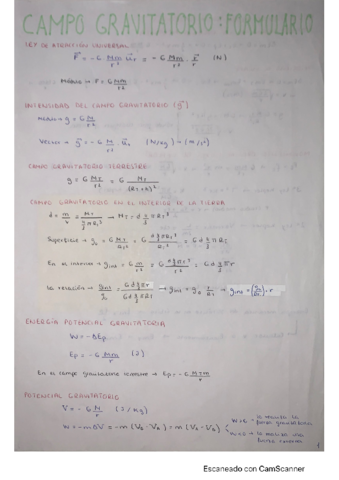 CAMPO GRAVITATORIO: FORMULARIO
LEY DE ATRACCIÓN UNIVERSAL
F⃗ = -G Mm/r² u⃗r = -G Mm/r² · r⃗/r (N)
Módulo → F = G Mm/r²
INTENSIDAD DEL CAMPO GRAVITATORIO (g⃗)
Módulo → g = G M/r²
Vector → g⃗ = -G M/r² · u⃗r (N/kg) = (m/s²)
CAMPO GRAVITATORIO TERRESTRE
g = G MT/r² = G MT/(RT+h)²
CAMPO GRAVITATORIO EN EL INTERIOR DE LA TIERRA
d = m/v = MT/(4/3 π RT³) → MT = d 4/3 π RT³
Superficie → g₀ = G MT/RT² = G (d 4/3 π RT³)/RT² = G d 4/3 π RT
En el interior → gint = G m/r² = G (d 4/3 π r³)/r² = G d 4/3 π r
La relación → gint/g₀ = (G d 4/3 π r)/(G d 4/3 π RT) → gint = g₀ r/RT → gint = (g₀/RT) · r
ENERGÍA POTENCIAL GRAVITATORIA
W = -ΔEp
Ep = -G Mm/r (J)
En el campo gravitatorio terrestre → Ep = -G MT m/r
POTENCIAL GRAVITATORIO
V = -G M/r (J/kg)
W = -mΔV = -m (V₂ - V₁) = m (V₁ - V₂)
fuerza gravitatoria
1
Escaneado con CamScanner